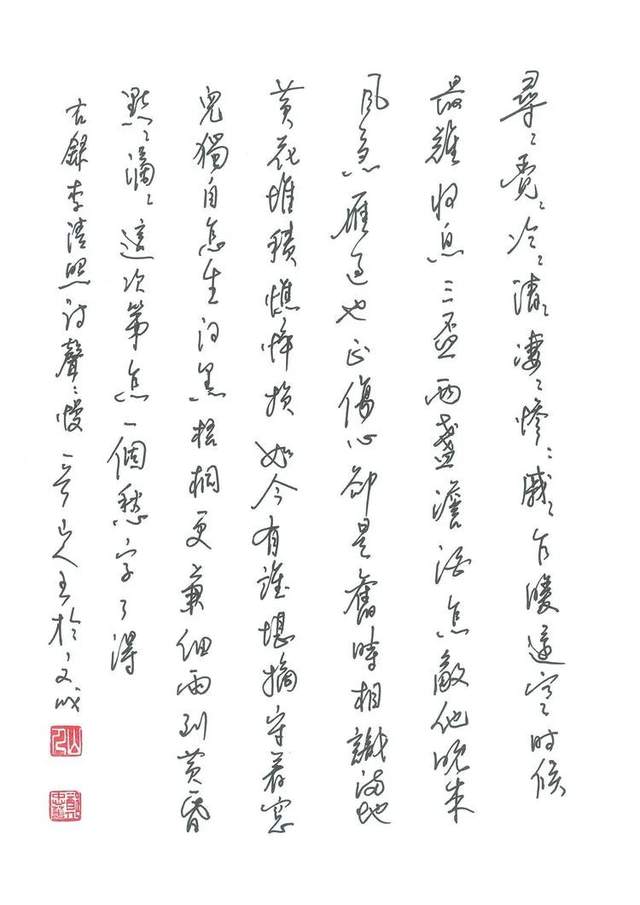 尋〻覓〻冷〻清〻凄〻慘〻戚〻乍暖還寒时候
最難将息三盃兩盞澹酒怎敵他晚来
風急雁過也正傷心卻是舊時相識滿地
黃花堆積憔悴損如今有誰堪摘守着窓
兒獨自怎生得黑梧桐更兼細雨到黃昏
點〻滴〻這次第怎一個愁字了得
右錄李清照詞聲〻慢 山人